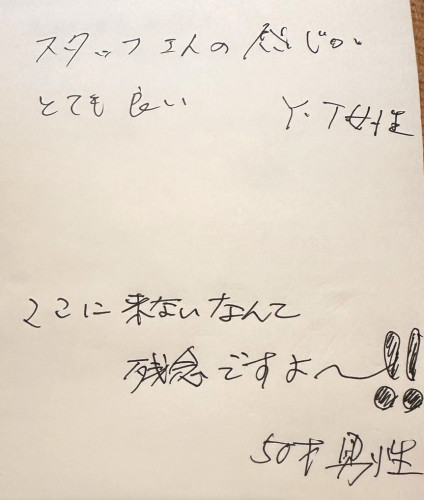 スタッフさんの感じが
とても良い
Y・T女性
ここに来ないなんて
残念ですよ〜!!
50才男性